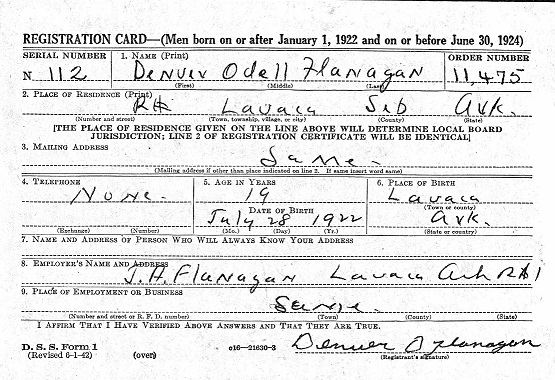 REGISTRATION CARD—(Men born on or after January 1, 1922 and on or before June 30, 1924)
SERIAL NUMBER 1. NAME (Print) ORDER NUMBER
N 112 Denver Odell Flanagan 11,475
(First) (Middle) (Last)
2. PLACE OF RESIDENCE (Print)
Lavaca Seb Ark.
(Number and street) (Town, township, village, or city) (County) (State)
[THE PLACE OF RESIDENCE GIVEN ON THE LINE ABOVE WILL DETERMINE LOCAL BOARD
JURISDICTION; LINE 2 OF REGISTRATION CERTIFICATE WILL BE IDENTICAL]
3. MAILING ADDRESS
Same.
(Mailing address if other than place indicated on line 2. If same insert word same)
4. TELEPHONE 5. AGE IN YEARS 6. PLACE OF BIRTH
None. 19 Lavaca
DATE OF BIRTH (Town or county)
July 28 1922 Ark.
(Exchange) (Number) (Mo.) (Day) (Yr.) (State or country)
7. NAME AND ADDRESS OF PERSON WHO WILL ALWAYS KNOW YOUR ADDRESS
8. EMPLOYER'S NAME AND ADDRESS
J. A. Flanagan Lavaca Ark R#1
9. PLACE OF EMPLOYMENT OR BUSINESS
Same.
(Number and street or R. F. D. number) (Town) (County) (State)
I AFFIRM THAT I HAVE VERIFIED ABOVE ANSWERS AND THAT THEY ARE TRUE.
D. S. S. Form 1
(Revised 6-1-42) (over) c16—21630-3 Denver O Flanagan
(Registrant's signature)